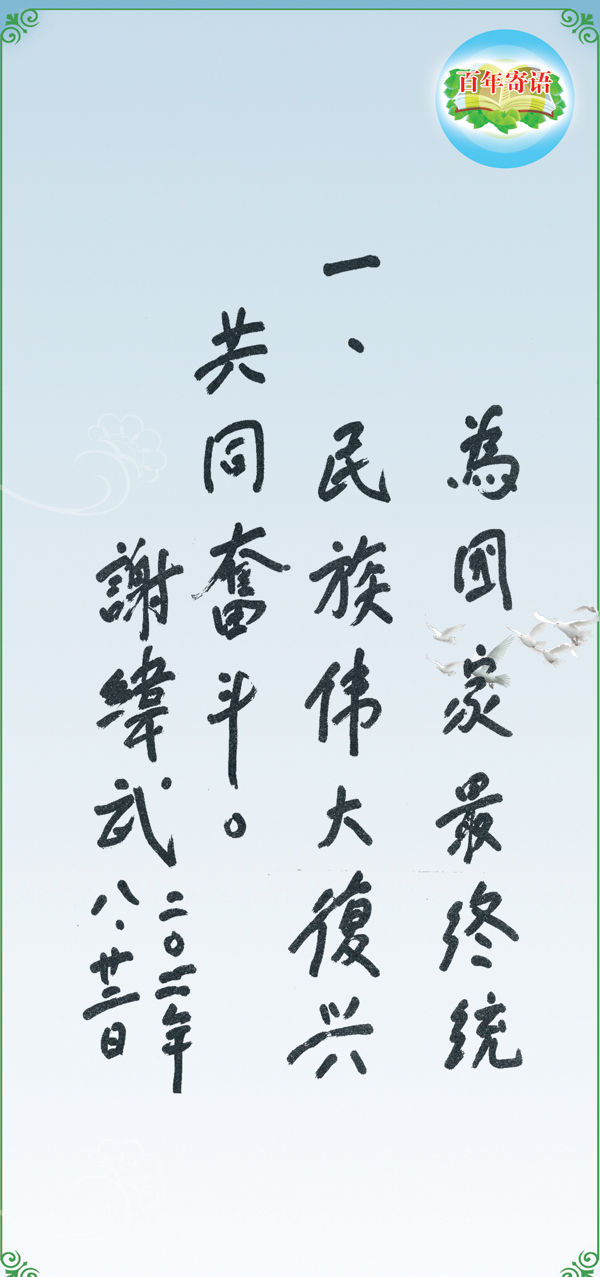 百年寄语
為國家最终统
一、民族伟大復兴
共同奮斗。
謝緯武
二〇一一年
八.廿三日